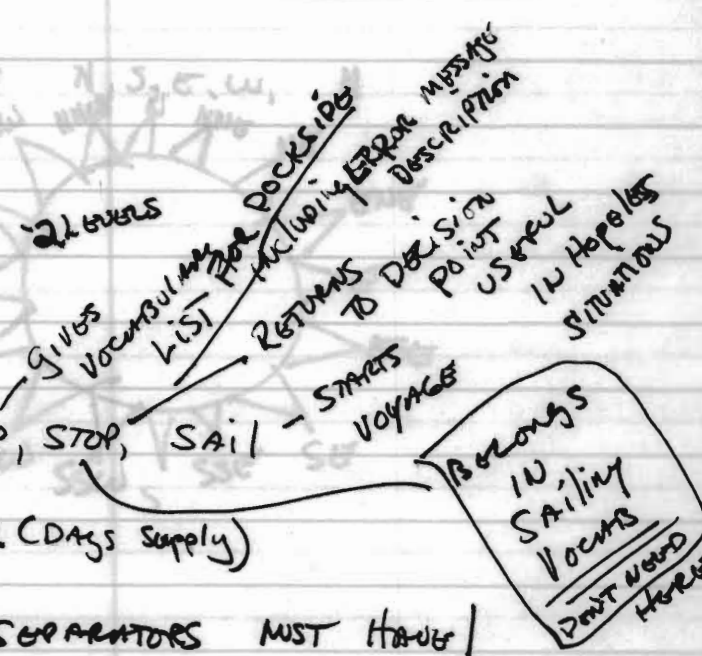 N, S, E, W,
2 LEVELS
GIVES
VOCABULARY
LIST FOR DOCKSIDE
INCLUDING ERROR MESSAGE
DESCRIPTION
RETURNS
TO DECISION
POINT
USEFUL
IN HOPELESS
SITUATIONS
P, STOP, SAIL - STARTS
VOYAGE
BELONGS
IN
SAILING
VOCAB
DON'T NEED
HERE
(DAYS SUPPLY)
SEPARATORS MUST HAVE
SE
SSE
S